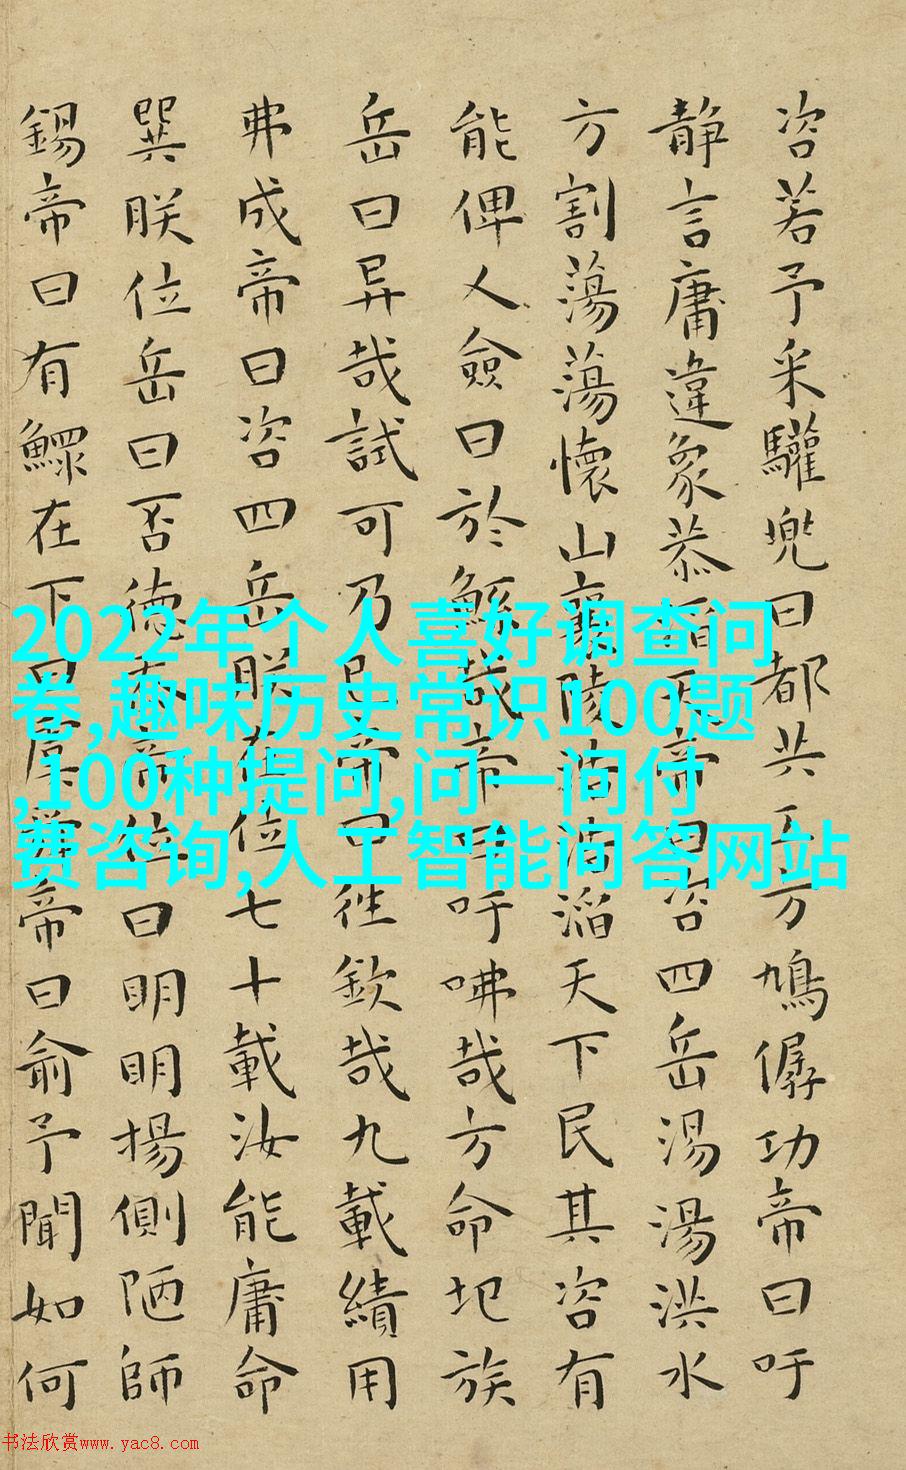 咨若予采驩兜曰都共工方鳩僝功帝曰吁
静言庸違象恭滔天帝曰咨四岳湯湯洪水
方割蕩蕩懷山襄陵浩浩滔天下民其咨有
能俾乂僉曰於鯀哉帝曰吁咈哉方命圮族
岳曰异哉試可乃已帝曰往欽哉九載績用
弗成帝曰咨四岳朕在位七十載汝能庸命
巽朕位岳曰否德忝帝位曰明明揚側陋師
錫帝曰有鰥在下曰虞舜帝曰俞予聞如何
2022年个人喜好调查问
卷,趣味历史常识100题
,100种提问,问一问付
费咨询,人工智能问答网站
书法欣赏www.yac8.com